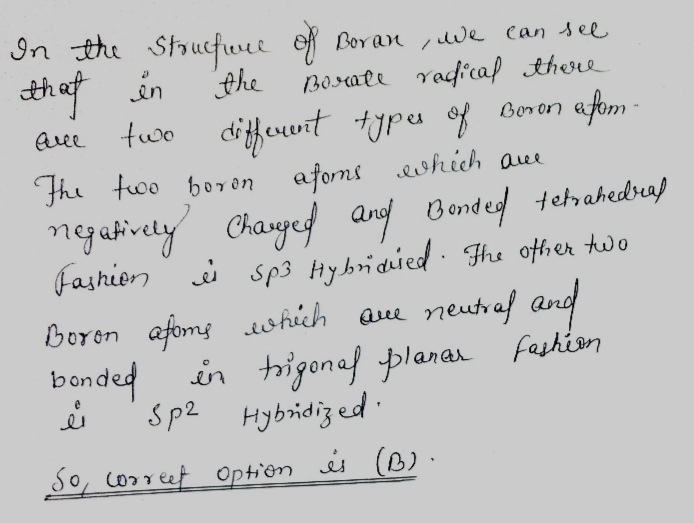 In the Structure of Boran, we can see
that in the Borate radical there
are two different types of Boron atom.
The two boron atoms which are
negatively Charged and Bonded tetrahedral
Fashion is sp3 Hybridised. The other two
Boron atoms which are neutral and
bonded in trigonal planar Fashion
is sp2 Hybridized.
So, correct option is (B).